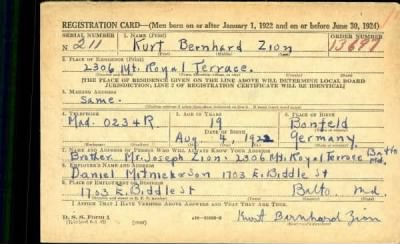 REGISTRATION CARD—(Men born on or after January 1, 1922 and on or before June 30, 1924)
SERIAL NUMBER 1. NAME (Print) ORDER NUMBER
N 211 Kurt Bernhard Zion 13697
2. PLACE OF RESIDENCE (Print)
2306 Mt. Royal Terrace.
[THE PLACE OF RESIDENCE GIVEN ON THE LINE ABOVE WILL DETERMINE LOCAL BOARD
JURISDICTION; LINE 2 OF REGISTRATION CERTIFICATE WILL BE IDENTICAL]
3. MAILING ADDRESS
Same.
4. TELEPHONE 5. AGE IN YEARS 6. PLACE OF BIRTH
Mad. 0234R 19 Bonfeld
DATE OF BIRTH
Aug 4, 1922 Germany
7. NAME AND ADDRESS OF PERSON WHO WILL ALWAYS KNOW YOUR ADDRESS
Brother Mr. Joseph Zion: 2306 Mt. Royal Terrace Balto Md.
8. EMPLOYER'S NAME AND ADDRESS
Daniel Motnick & Son 1703 E. Biddle St
9. PLACE OF EMPLOYMENT OR BUSINESS
1703 E. Biddle St Balto. Md.
I AFFIRM THAT I HAVE VERIFIED ABOVE ANSWERS AND THAT THEY ARE TRUE.
D. S. S. Form 1
Kurt Bernhard Zion